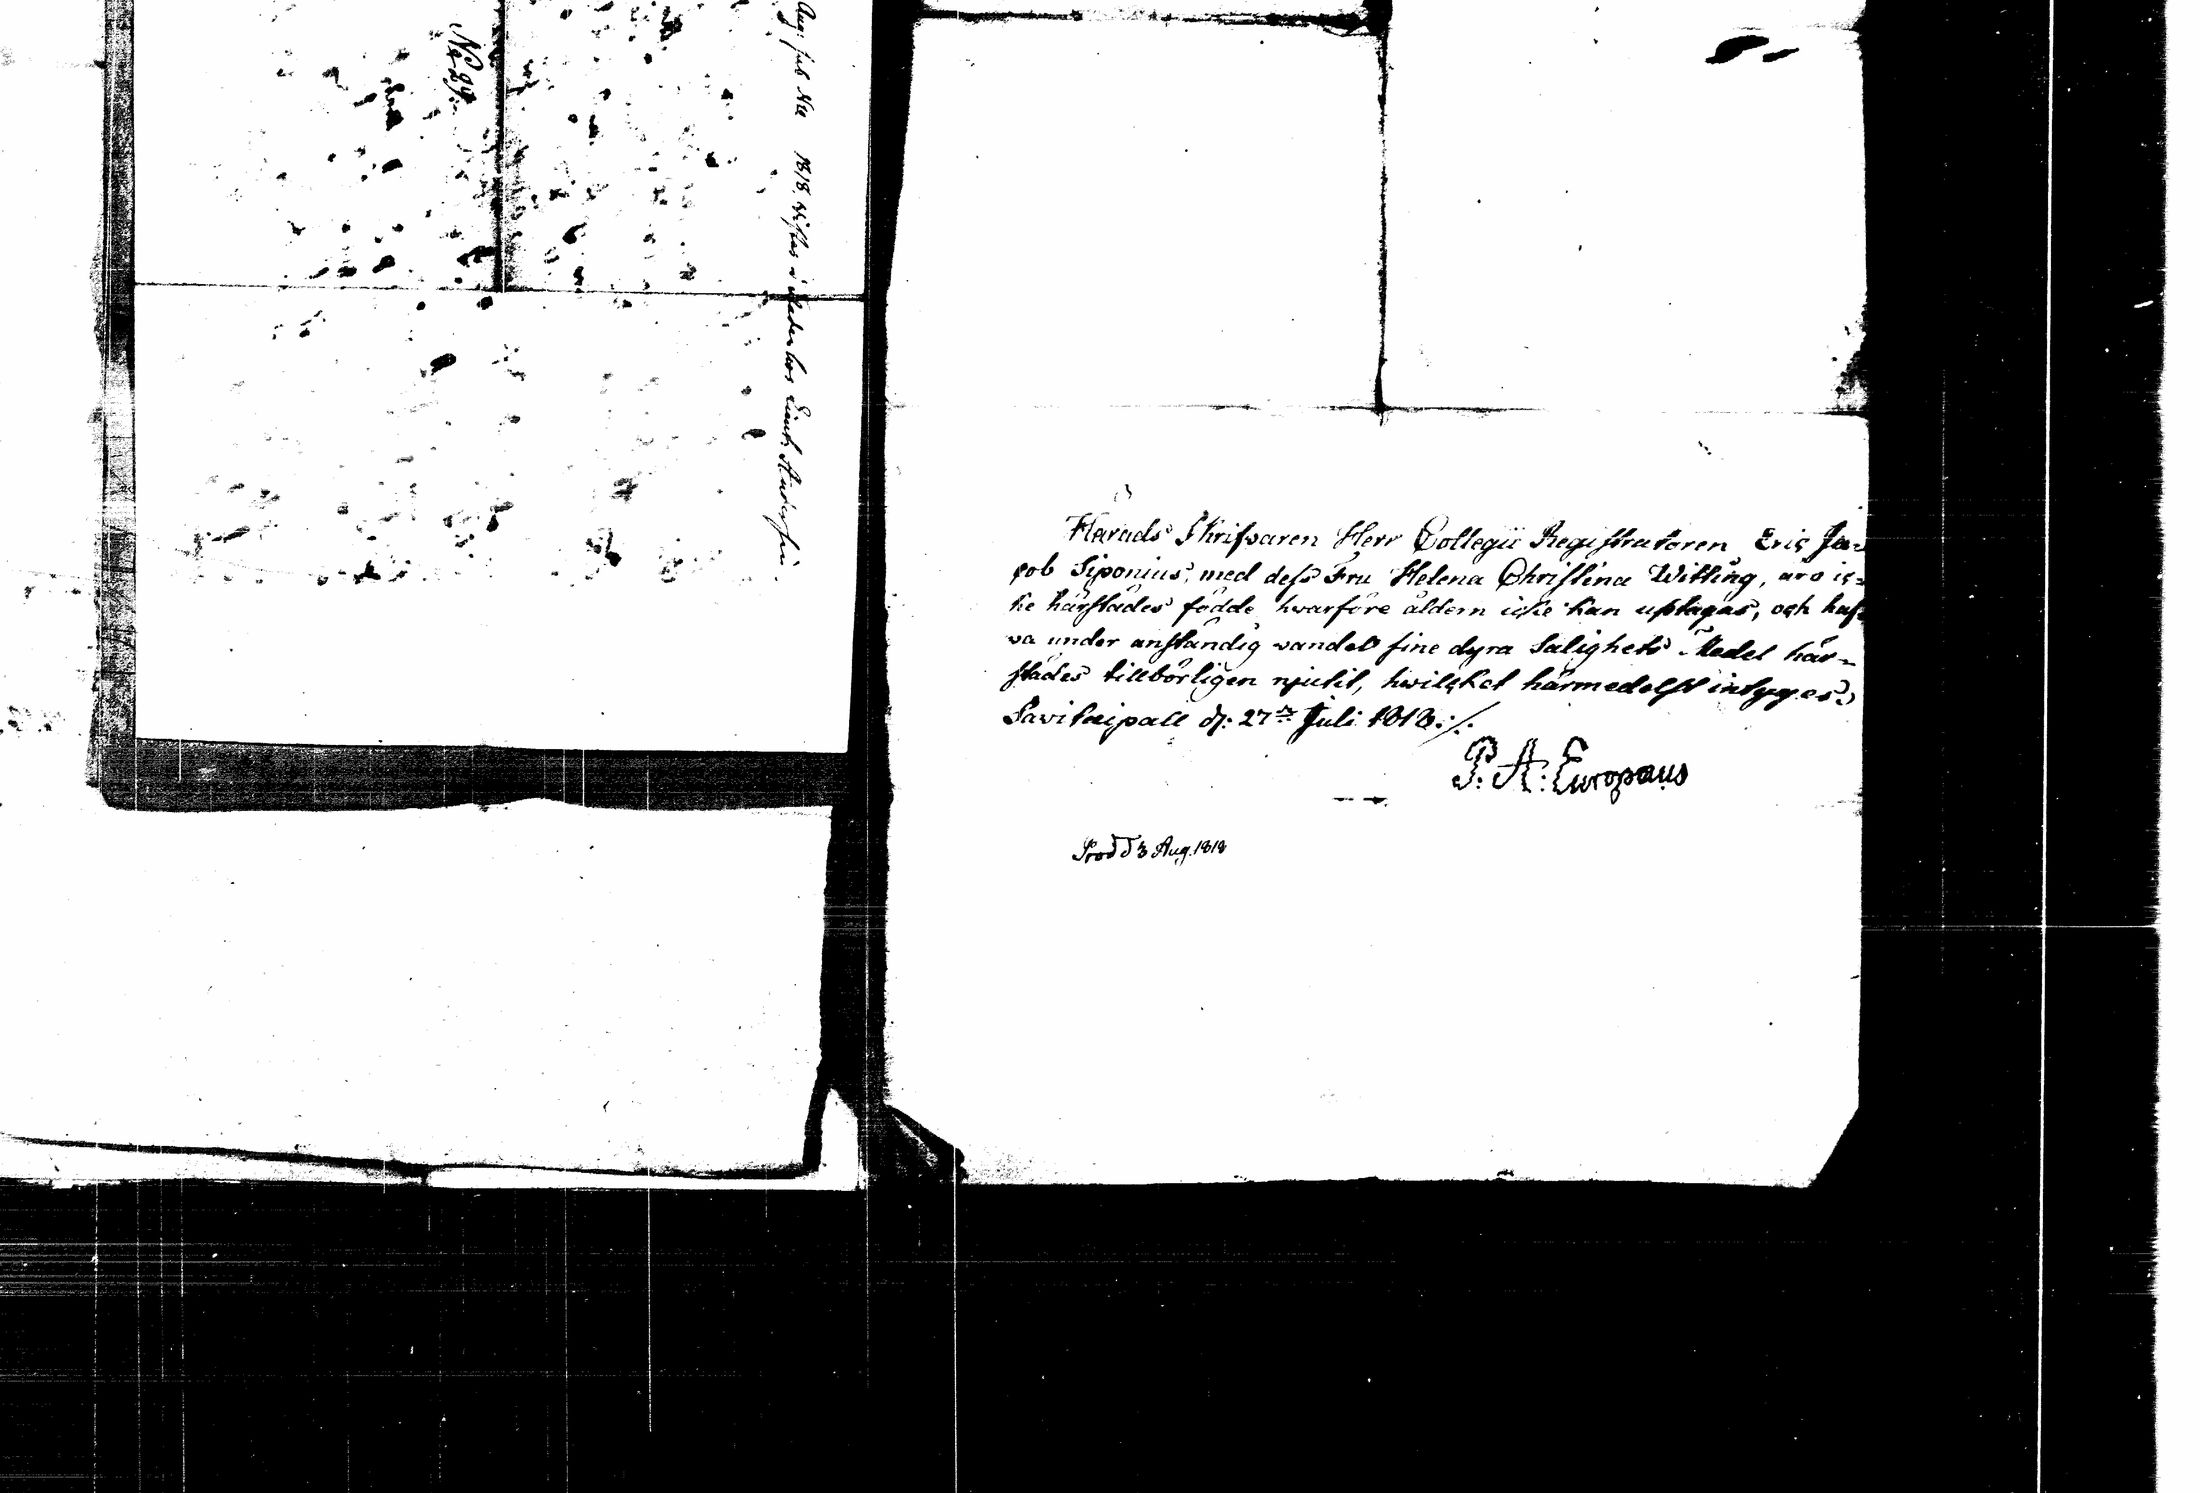 No 29.
Aug: sub No 1818, wistes i staden hos Lieut: Andersin.
Härads Skrifvaren Herr Collegii Registratoren Eric Ja=
cob Siponius, med dess Fru Helena Christina Witting, äro ic=
ke härstädes födde hvarföre åldern icke kan uptagas, och haf=
va under anständig vandel sine dyra Salighets Medel här=
städes tillbörligen njutit, hvilcket härmedelst intyges;
Savitaipall d: 27de Juli 1818:/.
P: A: Europæus
Prod d 3 Aug. 1818